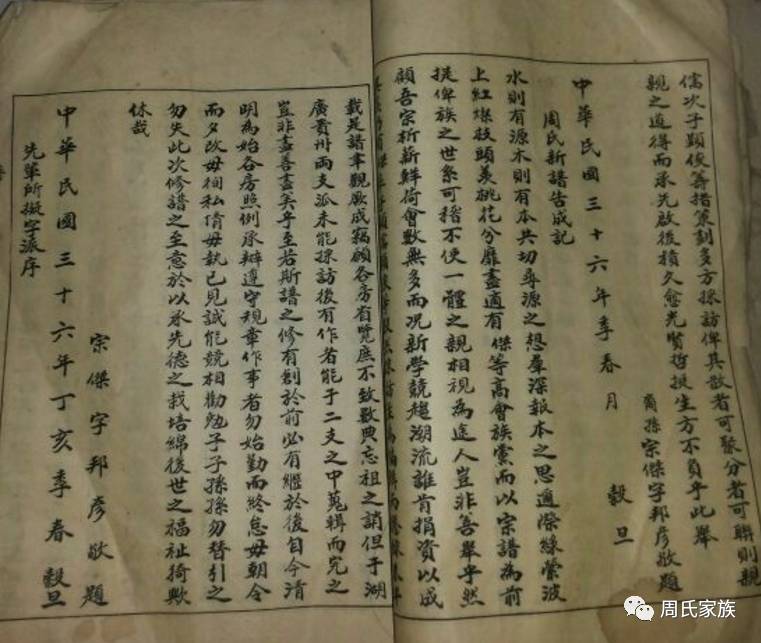 儒次子顕俊等措策划多方採訪俾具散者可聚分者可聯則親
親之道得而承先啟後積久愈光賢哲挺生方不負乎此舉
裔孫宗傑字邦彥敬題
中華民國三十六年季春月 穀旦
周氏新譜告成記
水則有源木則有本共切尋源之想羣深報本之思適際綠縈波
上紅燦枝頭羨桃花分靡盡適有傑等高會族黨而以宗譜為前
提俾族之世系可稽不使一體之親相視為途人豈非善舉乎然
顧吾宗析薪鮮荷會數無多而况新學競趨潮流誰肯捐資以成
載是譜幸觀厥成竊顧各房省覽庶不致數典忘祖之誚但于湖
廣貴州兩支派未能採訪後有作者能于二支之中蒐輯而完之
豈非盡善盡美乎至若斯譜之修有創於前必有繼於後自今清
明為始各房照例承辦遵守規章作事者勿始勤而終怠毋朝令
而夕改毋徇私情毋執已見誠能競相勸勉子子孫孫勿替引之
勿失此次修譜之至意於以承先德之栽培綿後世之福祉猗歟
休哉
宗傑字邦彥敬題
中華民國三十六年丁亥季春穀旦
先輩所擬字派序
周氏家族